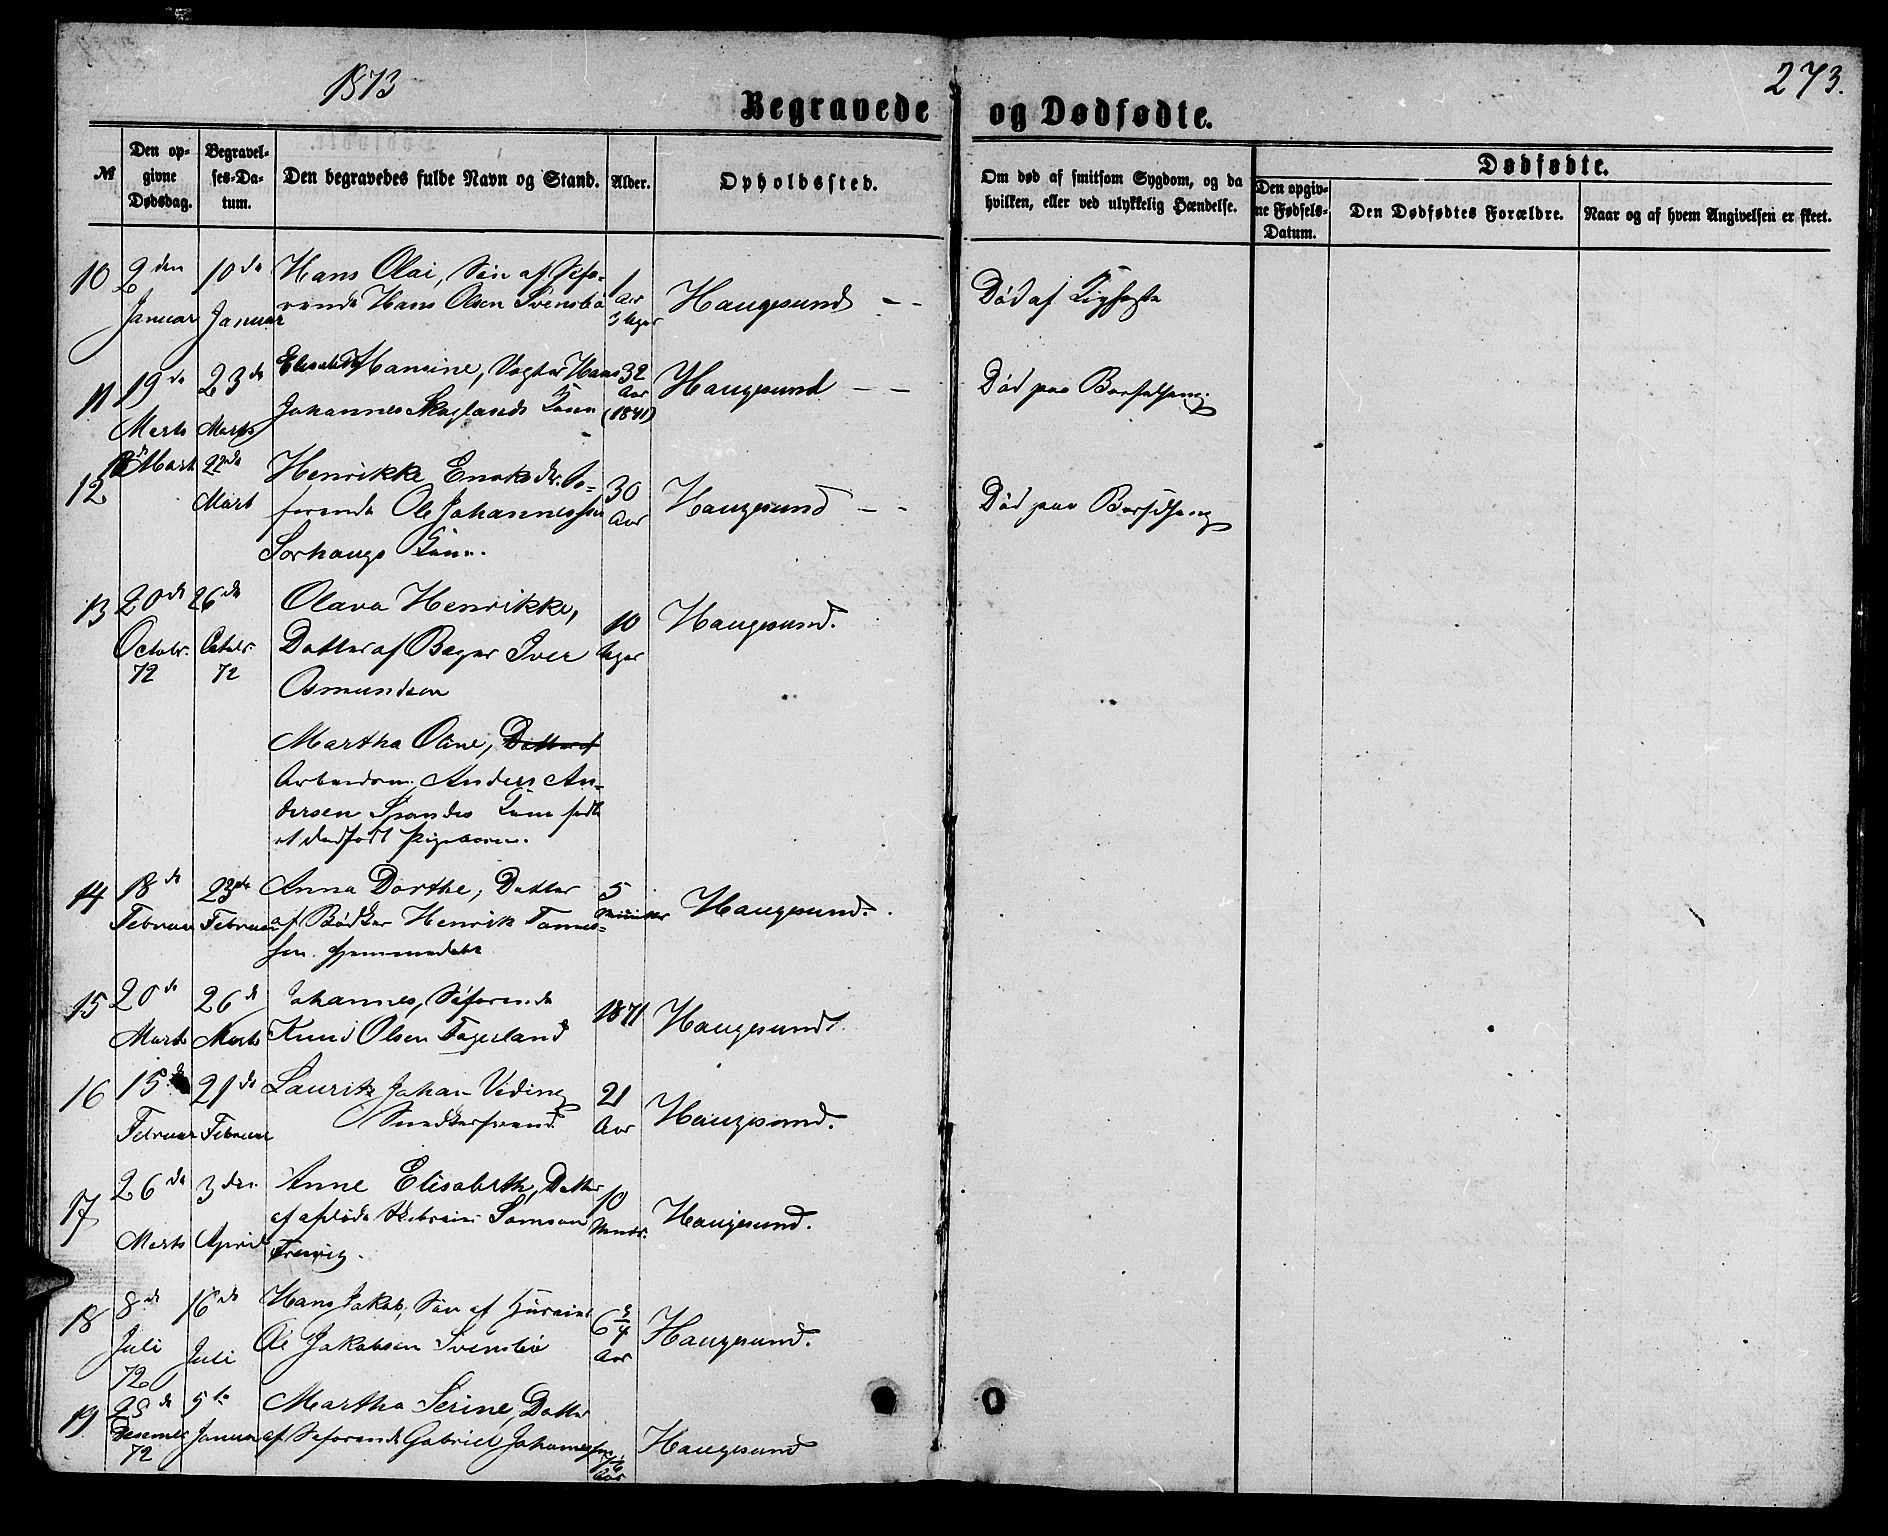 1873
273.
Begravede og Dødfødte.
№
Den opgivne Dødsdag.
Begravelses-Datum.
Den begravedes fulde Navn og Stand.
Alder.
Opholdssted.
Om død af smitsom Sygdom, og da hvilken, eller ved ulykkelig Hændelse.
Dødfødte.
Den opgivne Fødsels-Datum.
Den Dødfødtes Forældre.
Naar og af hvem Angivelsen er skeet.
10 2den 10de Hans Olai, Søn af Søfa- 1
Januar Januar rende Hans Olsen Svensbø Aar 3 Uger Haugesund - - Død af
11 19de 23de Elisabeth Hansine, Vægter Hans 32 Haugesund - - Død paa Barselseng.
Marts Marts Johannes Skoglands Kone Aar (1841)
12 Mart 22de Henrikke Enoksdr. Sø- 30 Haugesund - - Død paa Barselseng
Mart farende Ole Johannessen Aar
Sørhaugs Kone.
13 20de 26de Olava Henrikke, 10 Haugesund.
Octobr. Octobr. Datter af Bager Iver Uger
72 72 Osmundsen
Martha Oline, Datter af
Arbeidsm. Anders An-
dersen Spandes Kone født
et dødfødt Pigebarn.
14 18de 23de Anna Dorthe, Datter 5 Haugesund.
Februar Februar af Bødker Henrik Tonnes- Minutter
sen. hjemmedøbt
15 20de 26de Johannes, Søfarende 1871 Haugesund.
Marts Marts Knud Olsen Fagerland
16 15de 21de Lauritz Johan Viding 21 Haugesund.
Februar Februar Snedkersvend Aar
17 26de 3den Anne Elisabeth, Datter 10 Haugesund.
Marts April af afdøde Samson Mndr.
18 8de 16de Hans Jakob, Søn af 6 3/4 Haugesund.
Juli Juli Ole Jakobsen Svensbø Aar
72
19 28de 5te Martha Serine, Datter
Desember Januar af Søfarende Gabriel Johannessen Aar Haugesund
72